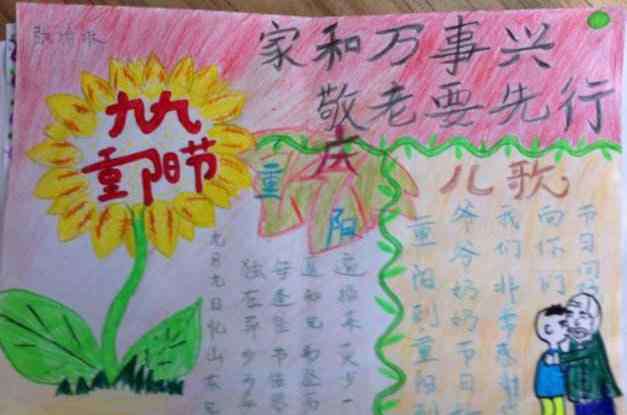 家和万事兴
敬老要先行
九九
重阳节
庆
重阳
九月九日忆山东兄
独在异乡
每逢佳节倍
遥知兄弟登高
遍插茱萸少一
儿歌
重阳到重阳到
爷爷奶奶节日
我们非常
向你们
节日问